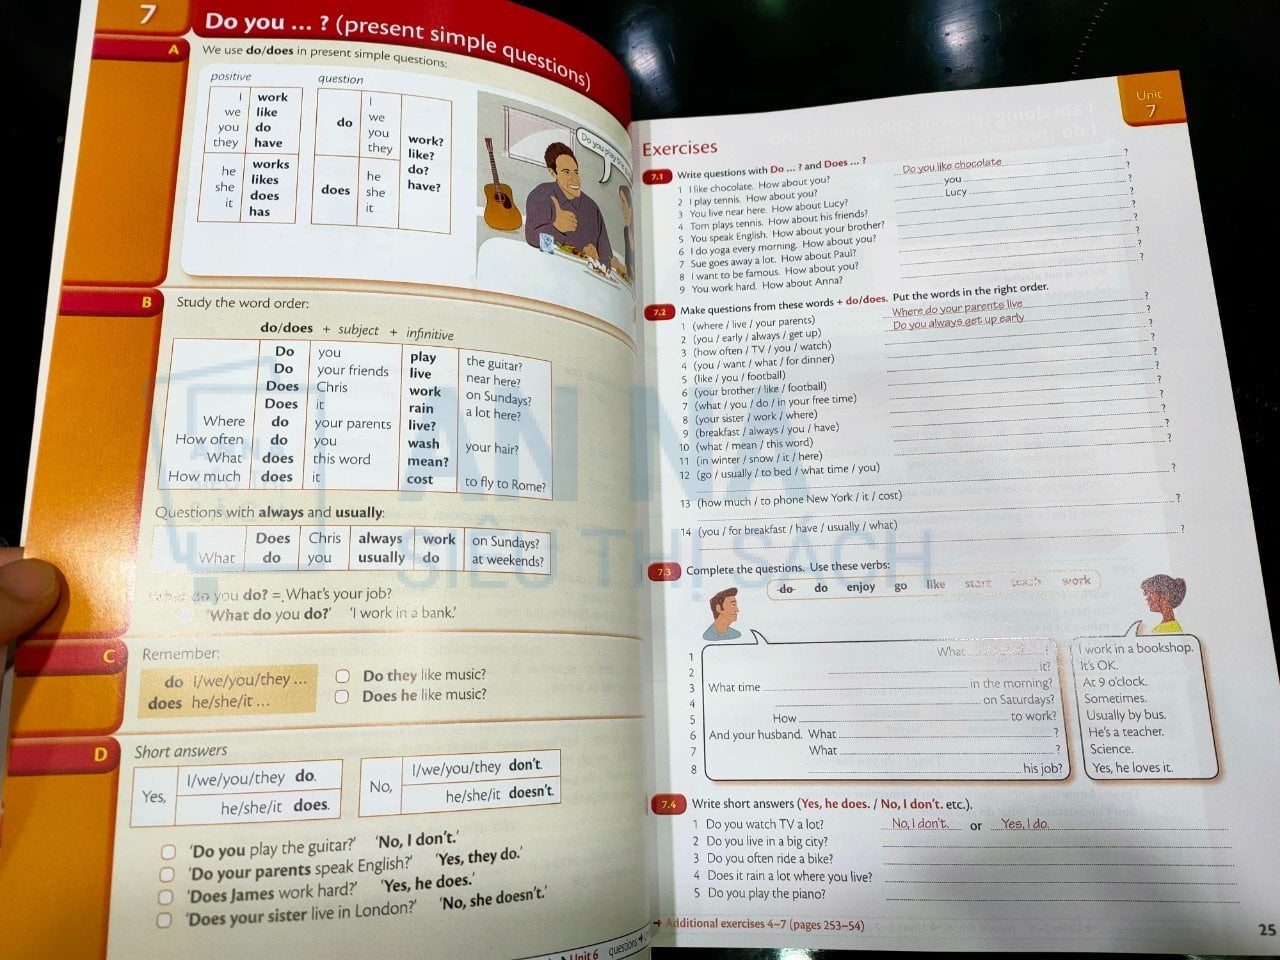 7
Do you ... ? (present simple questions)
A
We use do/does in present simple questions:
positive
question
I
we
you
they
work
like
do
have
he
she
it
works
likes
does
has
do
I
we
you
they
does
he
she
it
work?
like?
do?
have?
Do you play the
B
Study the word order:
do/does + subject + infinitive
Do you play the guitar?
Do your friends live near here?
Does Chris work on Sundays?
Does it rain a lot here?
Where do your parents live?
How often do you wash your hair?
What does this word mean?
How much does it cost to fly to Rome?
Questions with always and usually:
Does Chris always work on Sundays?
What do you usually do at weekends?
What do you do? = What's your job?
'What do you do?' 'I work in a bank.'
C
Remember:
do I/we/you/they ...
does he/she/it ...
Do they like music?
Does he like music?
D
Short answers
Yes,
I/we/you/they do.
he/she/it does.
No,
I/we/you/they don't.
he/she/it doesn't.
'Do you play the guitar?' 'No, I don't.'
'Do your parents speak English?' 'Yes, they do.'
'Does James work hard?' 'Yes, he does.'
'Does your sister live in London?' 'No, she doesn't.'
Unit 6
Unit
7
Exercises
7.1 Write questions with Do ... ? and Does ... ?
1 I like chocolate. How about you? Do you like chocolate ?
2 I play tennis. How about you? you ?
3 You live near here. How about Lucy? Lucy ?
4 Tom plays tennis. How about his friends? ?
5 You speak English. How about your brother? ?
6 I do yoga every morning. How about you? ?
7 Sue goes away a lot. How about Paul? ?
8 I want to be famous. How about you? ?
9 You work hard. How about Anna? ?
7.2 Make questions from these words + do/does. Put the words in the right order.
1 (where / live / your parents) Where do your parents live ?
2 (you / early / always / get up) Do you always get up early ?
3 (how often / TV / you / watch) ?
4 (you / want / what / for dinner) ?
5 (like / you / football) ?
6 (your brother / like / football) ?
7 (what / you / do / in your free time) ?
8 (your sister / work / where) ?
9 (breakfast / always / you / have) ?
10 (what / mean / this word) ?
11 (in winter / snow / it / here) ?
12 (go / usually / to bed / what time / you)
?
13 (how much / to phone New York / it / cost)
?
14 (you / for breakfast / have / usually / what)
?
7.3 Complete the questions. Use these verbs:
do do enjoy go like start teach work
1 What ? I work in a bookshop.
2 it? It's OK.
3 What time in the morning? At 9 o'clock.
4 on Saturdays? Sometimes.
5 How to work? Usually by bus.
6 And your husband. What ? He's a teacher.
7 What ? Science.
8 his job? Yes, he loves it.
7.4 Write short answers (Yes, he does. / No, I don't. etc.).
1 Do you watch TV a lot? No, I don't. or Yes, I do.
2 Do you live in a big city?
3 Do you often ride a bike?
4 Does it rain a lot where you live?
5 Do you play the piano?
Additional exercises 4–7 (pages 253–54)
25
AN NA
SIÊU THỊ SÁCH